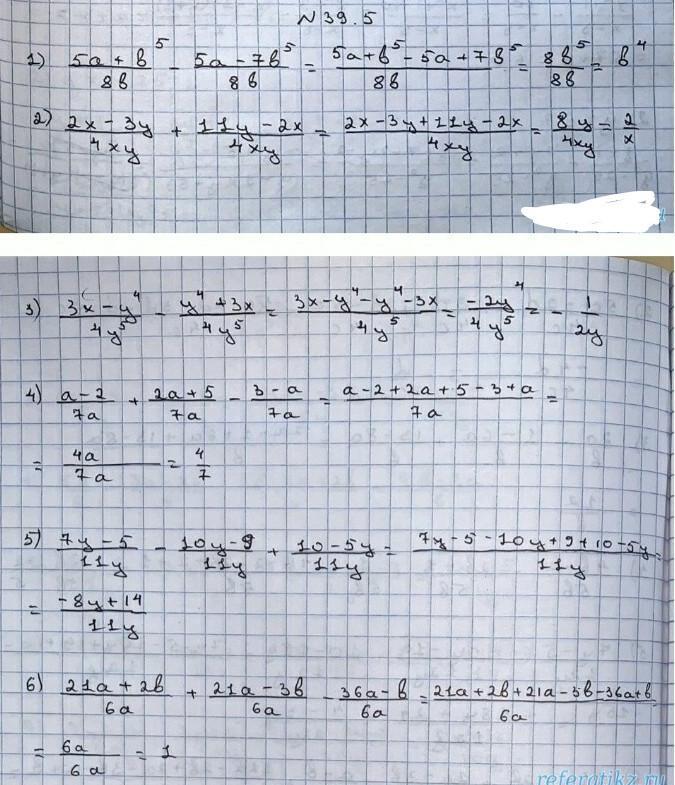 N 39.5
1) (5a + b^5)/(8b) - (5a - 7b^5)/(8b) = (5a + b^5 - 5a + 7b^5)/(8b) = (8b^5)/(8b) = b^4
2) (2x - 3y)/(4xy) + (11y - 2x)/(4xy) = (2x - 3y + 11y - 2x)/(4xy) = (8y)/(4xy) = 2/x
3) (3x - y^4)/(4y^5) - (y^4 + 3x)/(4y^5) = (3x - y^4 - y^4 - 3x)/(4y^5) = (-2y^4)/(4y^5) = - 1/(2y)
4) (a - 2)/(7a) + (2a + 5)/(7a) - (3 - a)/(7a) = (a - 2 + 2a + 5 - 3 + a)/(7a) =
= (4a)/(7a) = 4/7
5) (7y - 5)/(11y) - (10y - 9)/(11y) + (10 - 5y)/(11y) = (7y - 5 - 10y + 9 + 10 - 5y)/(11y) =
= (-8y + 14)/(11y)
6) (21a + 2b)/(6a) + (21a - 3b)/(6a) - (36a - b)/(6a) = (21a + 2b + 21a - 3b - 36a + b)/(6a)
= (6a)/(6a) = 1
referatikz.ru